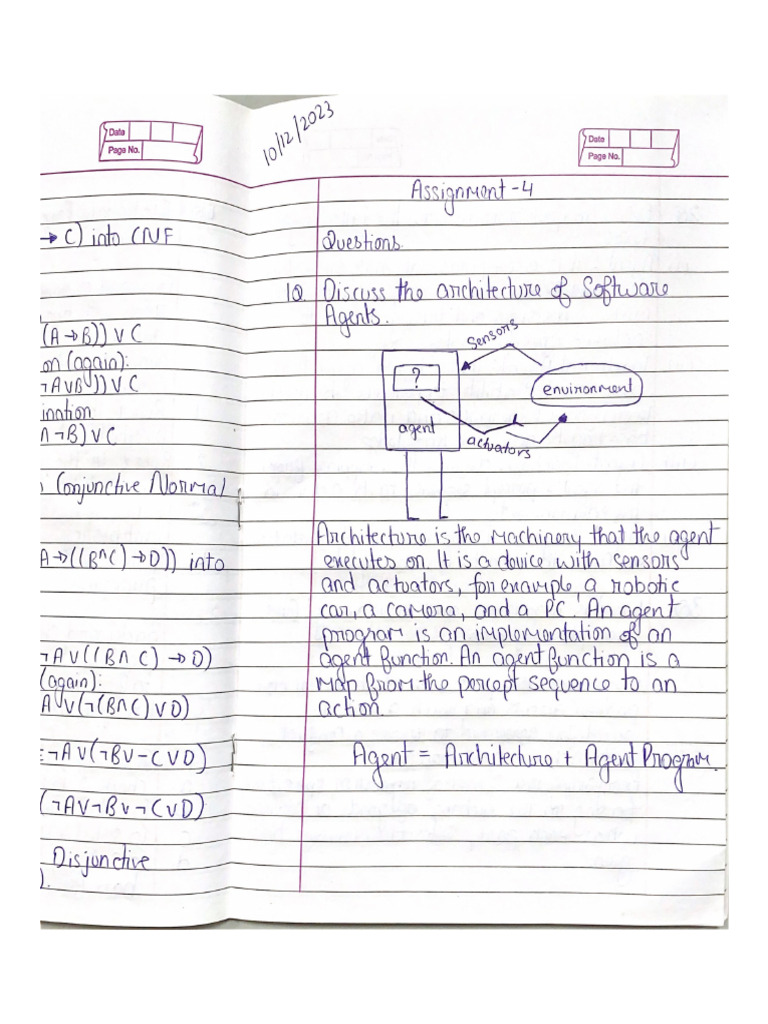 Date
Page No.
→ C) into CNF
(A → B)) ∨ C
on (again):
¬A∨B)) ∨ C
ination
∧ ¬B) ∨ C
Conjunctive Normal
A→((B∧C)→D)) into
¬A∨((B∧C)→D)
(again):
A∨(¬(B∧C)∨D)
¬A∨(¬B∨-C∨D)
(¬A∨¬B∨¬C∨D)
Disjunctive
).
10/12/2023
Date
Page No.
Assignment-4
Questions.
1Q Discuss the architecture of Software
Agents.
Sensors
?
environment
agent
actuators
Architecture is the machinery that the agent
executes on. It is a device with sensors
and actuators, for example, a robotic
car, a camera, and a PC. An agent
program is an implementation of an
agent function. An agent function is a
map from the percept sequence to an
action.
Agent = Architecture + Agent Program.